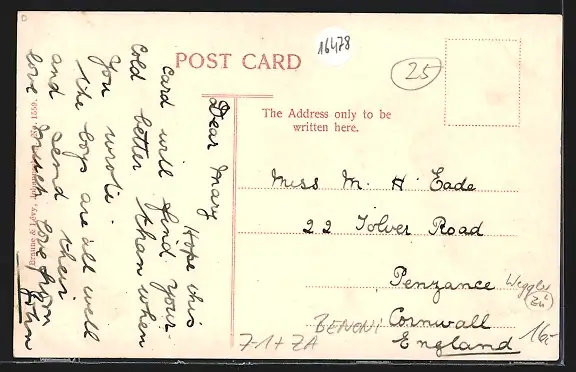 16478
POST CARD
25
The Address only to be
written here.
Dear Mary
Hope this
card will find your
cold better than when
you wrote.
The boys are all well
and send their
love much love from
John
Miss M. H Eade
22 Tolver Road
Penzance
Cornwall
England
Braune & Lévy, Johannesburg. No. 1550.
BENONI
16.-